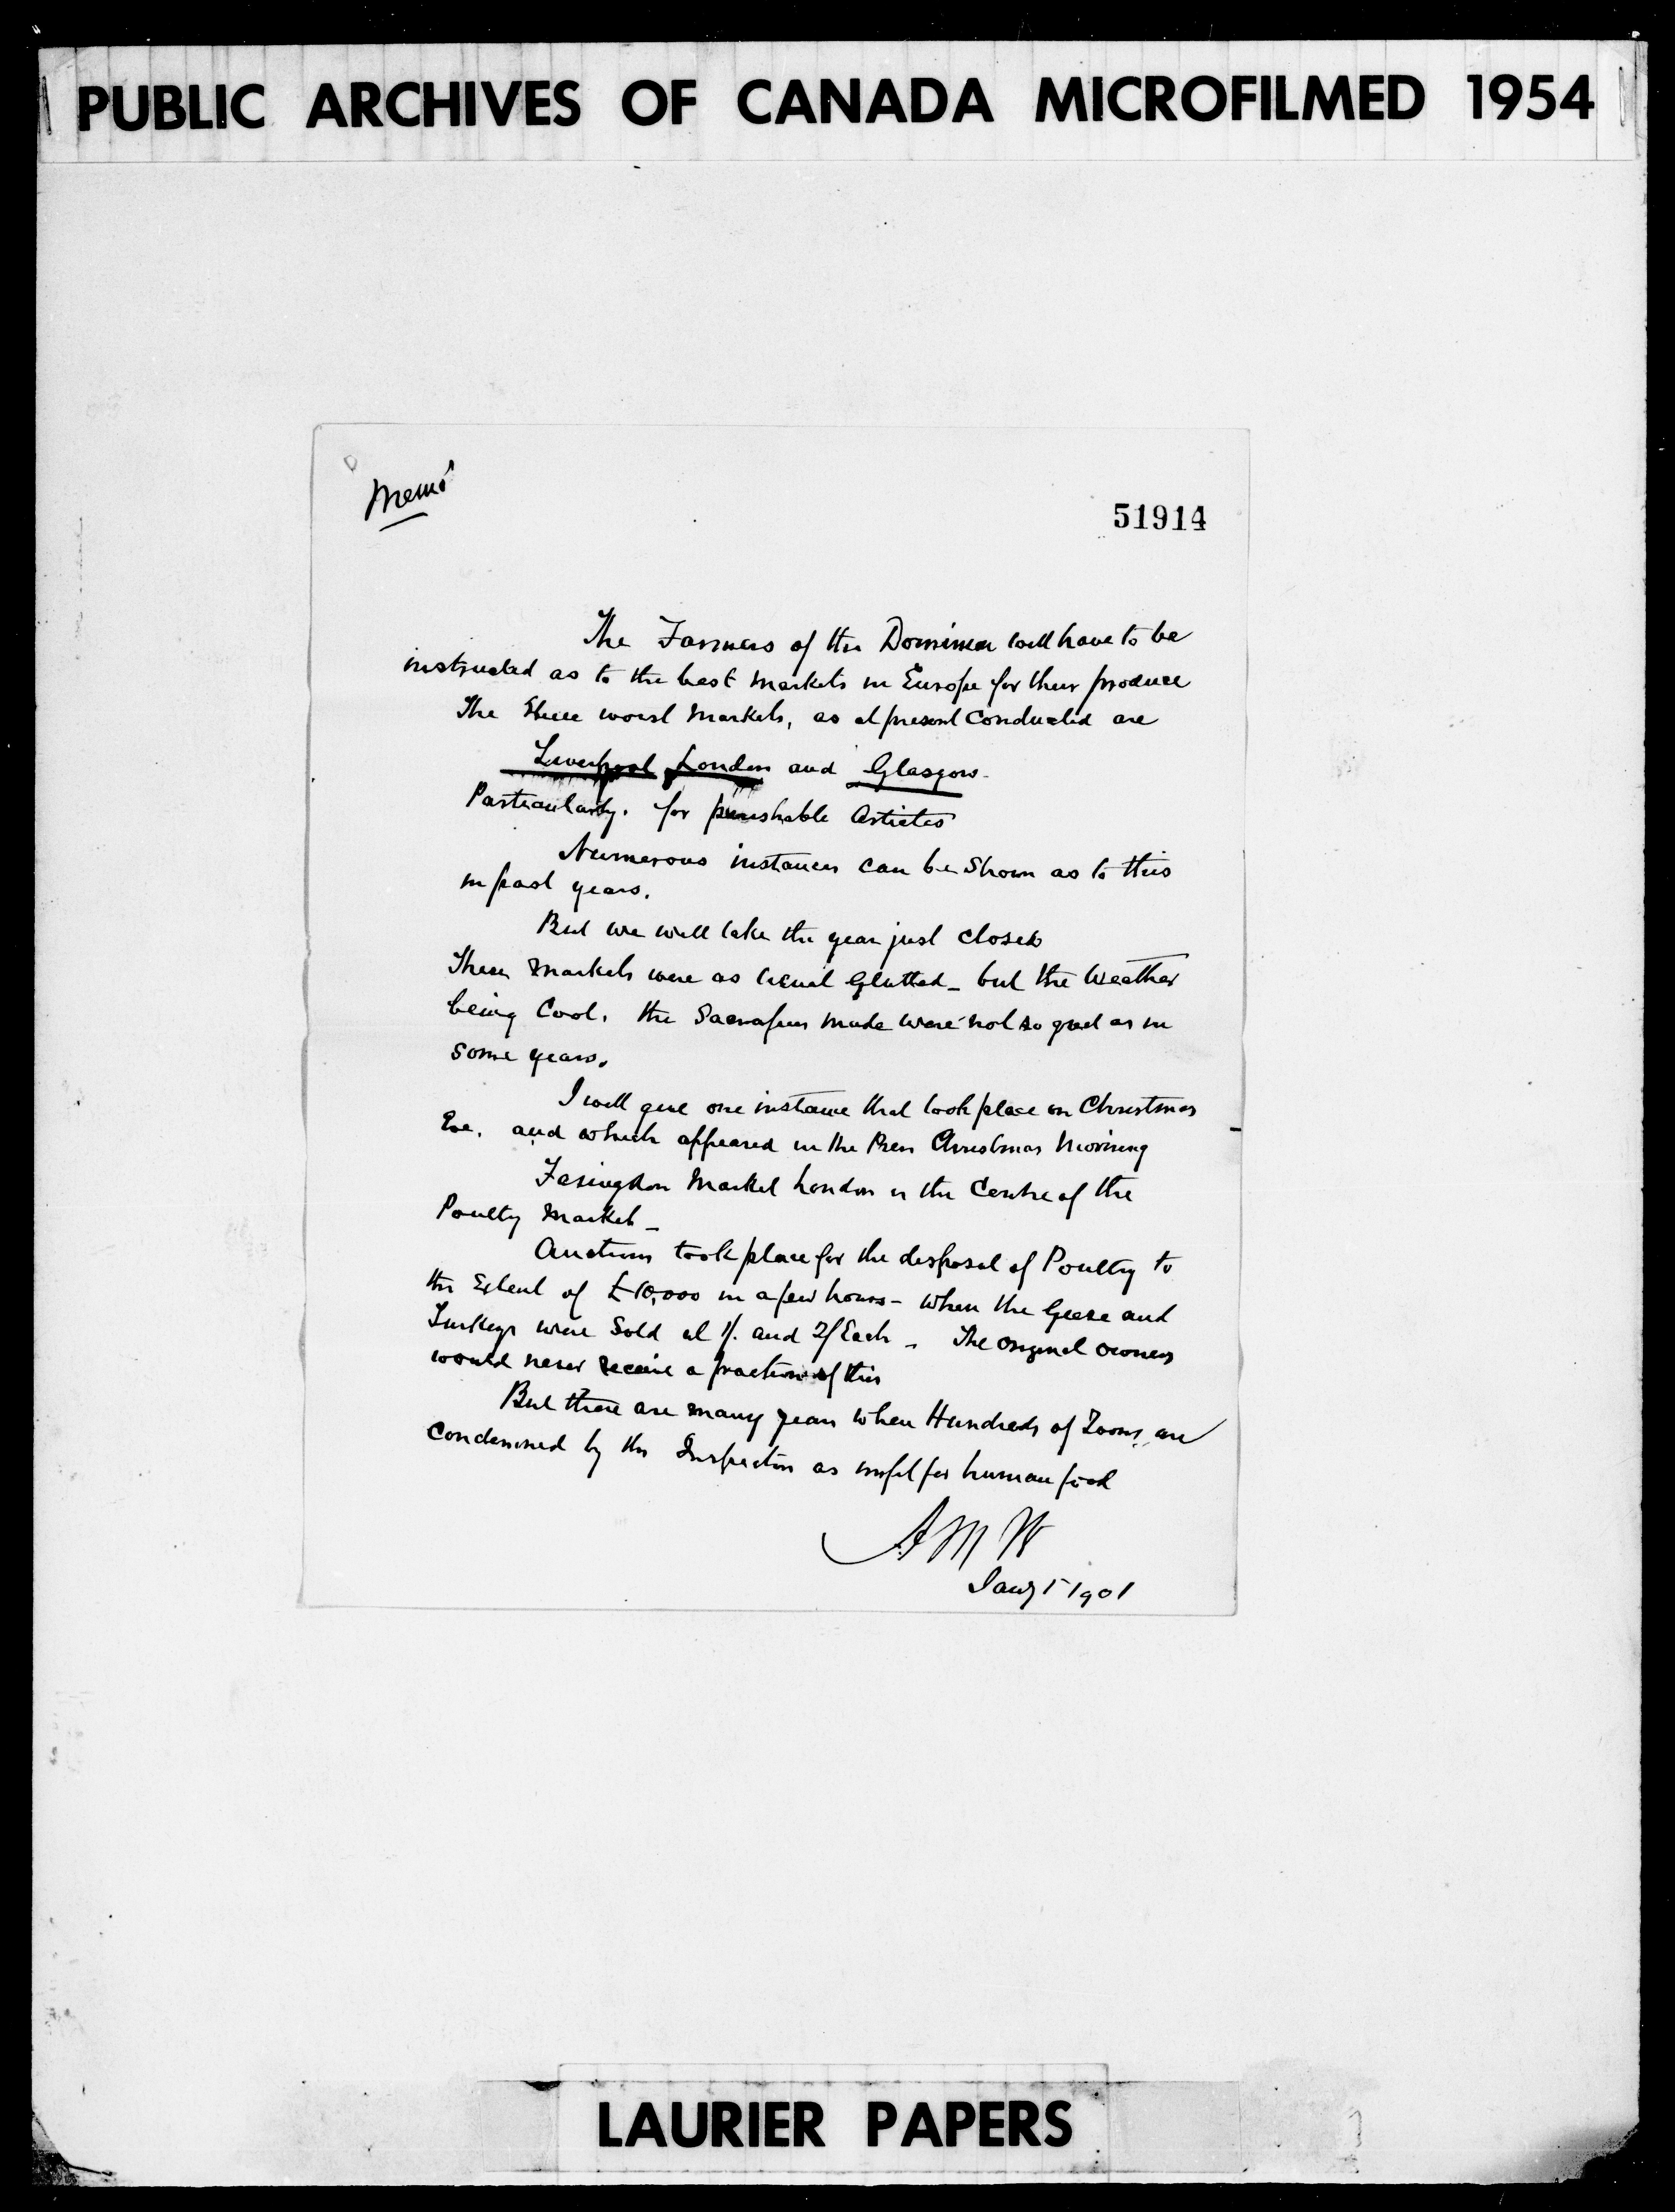 PUBLIC ARCHIVES OF CANADA MICROFILMED 1954
Memo
51914
The Farmers of the Dominion will have to be
instructed as to the best Markets in Europe for their produce
The three worst Markets, as at present Conducted are
Liverpool London and Glasgow
Particularly. for perishable Articles
Numerous instances can be Shown as to this
in past years.
But we will take the year just closed
These Markets were as usual Glutted - but the Weather
being Cool. the Sacrafices made were not so great as in
some years.
I will give one instance that took place on Christmas
Eve. and which appeared in the Press Christmas Morning
Faringdon Market London is the Centre of the
Poultry Market -
Auctions took place for the disposal of Poultry to
the Extent of £10,000 in a few hours - When the Geese and
Turkeys were Sold at 1/. and 2/ Each - The original owners
would never receive a fraction of this
But there are many years when Hundreds of Tons are
Condemned by the Inspector as unfit for human food
A M W
Jany 1901
LAURIER PAPERS